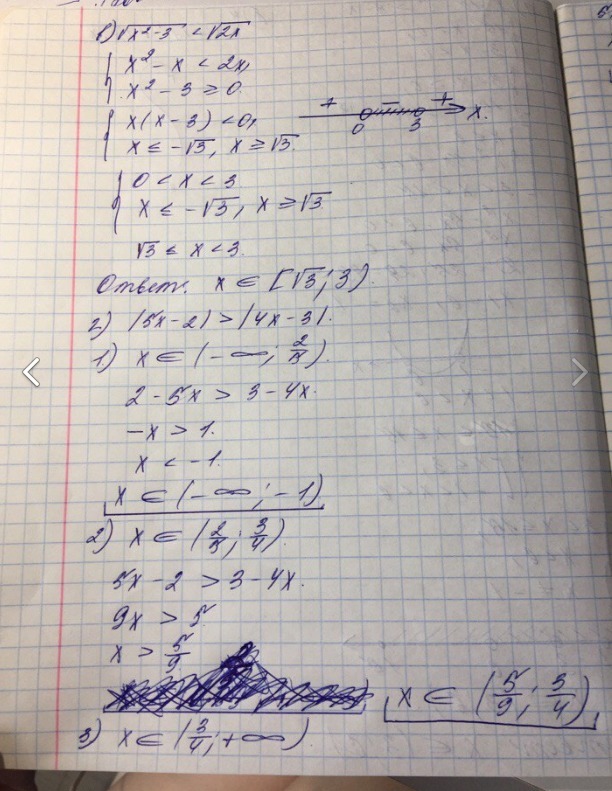 в) √x²-3 < √2x
x² - x < 2x,
x² - 3 ≥ 0
x(x - 3) < 0,
x ≤ -√3, x ≥ √3.
+ − + x.
0 3
0 < x < 3
x ≤ -√3, x ≥ √3
√3 ≤ x < 3.
Ответ. x ∈ [√3; 3).
г) |5x-2| > |4x-3|.
1) x ∈ (-∞; 2/5).
2 - 5x > 3 - 4x.
-x > 1.
x < -1.
x ∈ (-∞; -1)
2) x ∈ (2/5; 3/4).
5x - 2 > 3 - 4x.
9x > 5
x > 5/9
x ∈ (5/9; 3/4),
3) x ∈ (3/4; +∞)